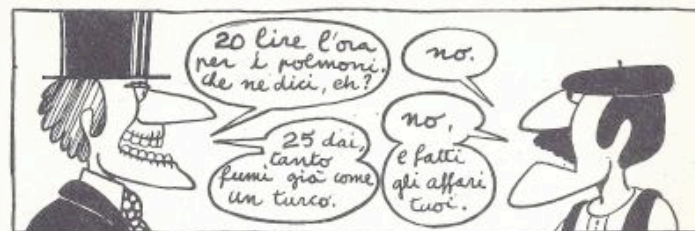 20 lire l'ora
per i polmoni.
che ne dici, eh?
no.
25 dai,
tanto
fumi già come
un turco.
no,
e fatti
gli affari
tuoi.